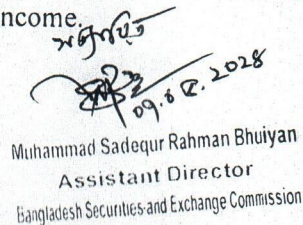 ncome.
সত্যায়িত
০৯.৪.২০২৪
Muhammad Sadequr Rahman Bhuiyan
Assistant Director
Bangladesh Securities and Exchange Commission